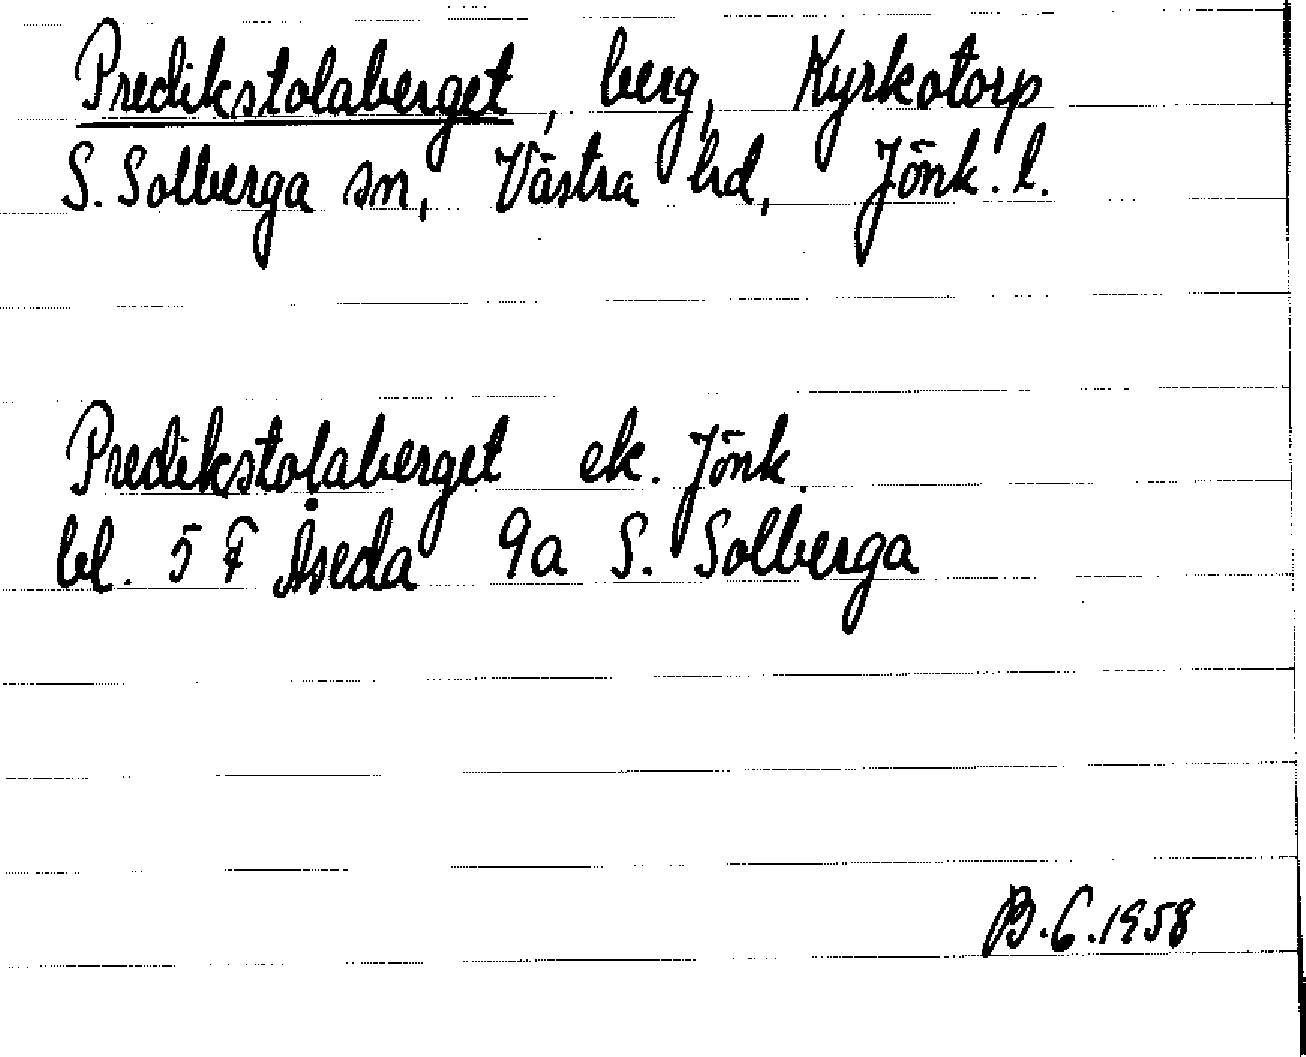 Predikstolaberget, berg, Kyrkotorp
S. Solberga sn, Västra hd, Jönk. l.
Predikstolaberget ek. Jönk.
bl. 5 F Åseda 9a S. Solberga
B.G.1958